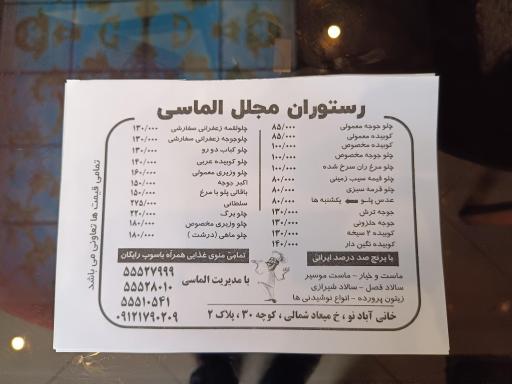 رستوران مجلل الماسی
چلو جوجه معمولی ۸۵/۰۰۰
کوبیده معمولی ۸۵/۰۰۰
کوبیده مخصوص ۱۰۰/۰۰۰
چلو جوجه مخصوص ۱۰۰/۰۰۰
چلو مرغ ران سرخ شده ۱۰۰/۰۰۰
چلو قیمه سیب زمینی ۸۰/۰۰۰
چلو قرمه سبزی ۸۰/۰۰۰
عدس پلو یکشنبه ها ۸۰/۰۰۰
جوجه ترش ۱۳۰/۰۰۰
جوجه حلزونی ۱۳۰/۰۰۰
کوبیده ۲ سیخه ۱۳۰/۰۰۰
کوبیده نگین دار ۱۴۰/۰۰۰
چلولقمه زعفرانی سفارشی ۱۳۰/۰۰۰
چلوجوجه زعفرانی سفارشی ۱۳۰/۰۰۰
چلو کباب دو رو ۱۳۰/۰۰۰
چلو کوبیده عربی ۱۴۰/۰۰۰
چلو وزیری معمولی ۱۶۰/۰۰۰
اکبر جوجه ۱۵۰/۰۰۰
باقالی پلو با مرغ ۱۵۰/۰۰۰
سلطانی ۲۷۵/۰۰۰
چلو برگ ۲۲۰/۰۰۰
چلو وزیری مخصوص ۱۸۰/۰۰۰
چلو ماهی (درشت) ۱۸۰/۰۰۰
تمامی قیمت ها تعاونی می باشد
با برنج صد درصد ایرانی
ماست و خیار - ماست موسیر
سالاد فصل - سالاد شیرازی
زیتون پرورده - انواع نوشیدنی ها
تمامی منوی غذایی همراه باسوپ رایگان
با مدیریت الماسی
۵۵۵۲۷۹۹۹
۵۵۵۲۸۰۱۰
۵۵۵۱۰۵۴۱
۰۹۱۲۱۷۹۰۲۰۹
خانی آباد نو ، خ میعاد شمالی ، کوچه ۳۰ ، پلاک ۲